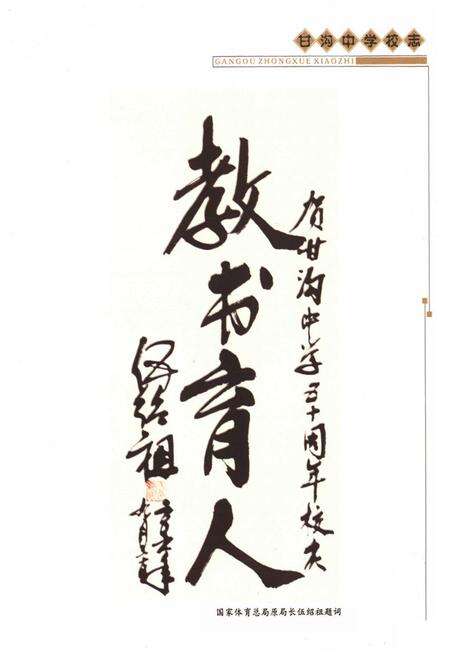 甘沟中学校志
GANGOU ZHONGXUE XIAOZHI
贺甘沟中学五十周年校庆
教书育人
伍绍祖
国家体育总局原局长伍绍祖题词